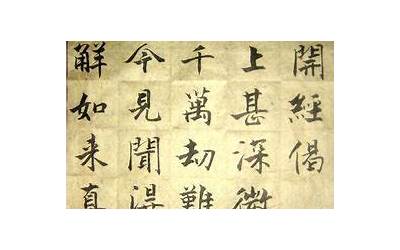 開經偈
上甚深微
千萬劫難
今見聞淂
觧如来真